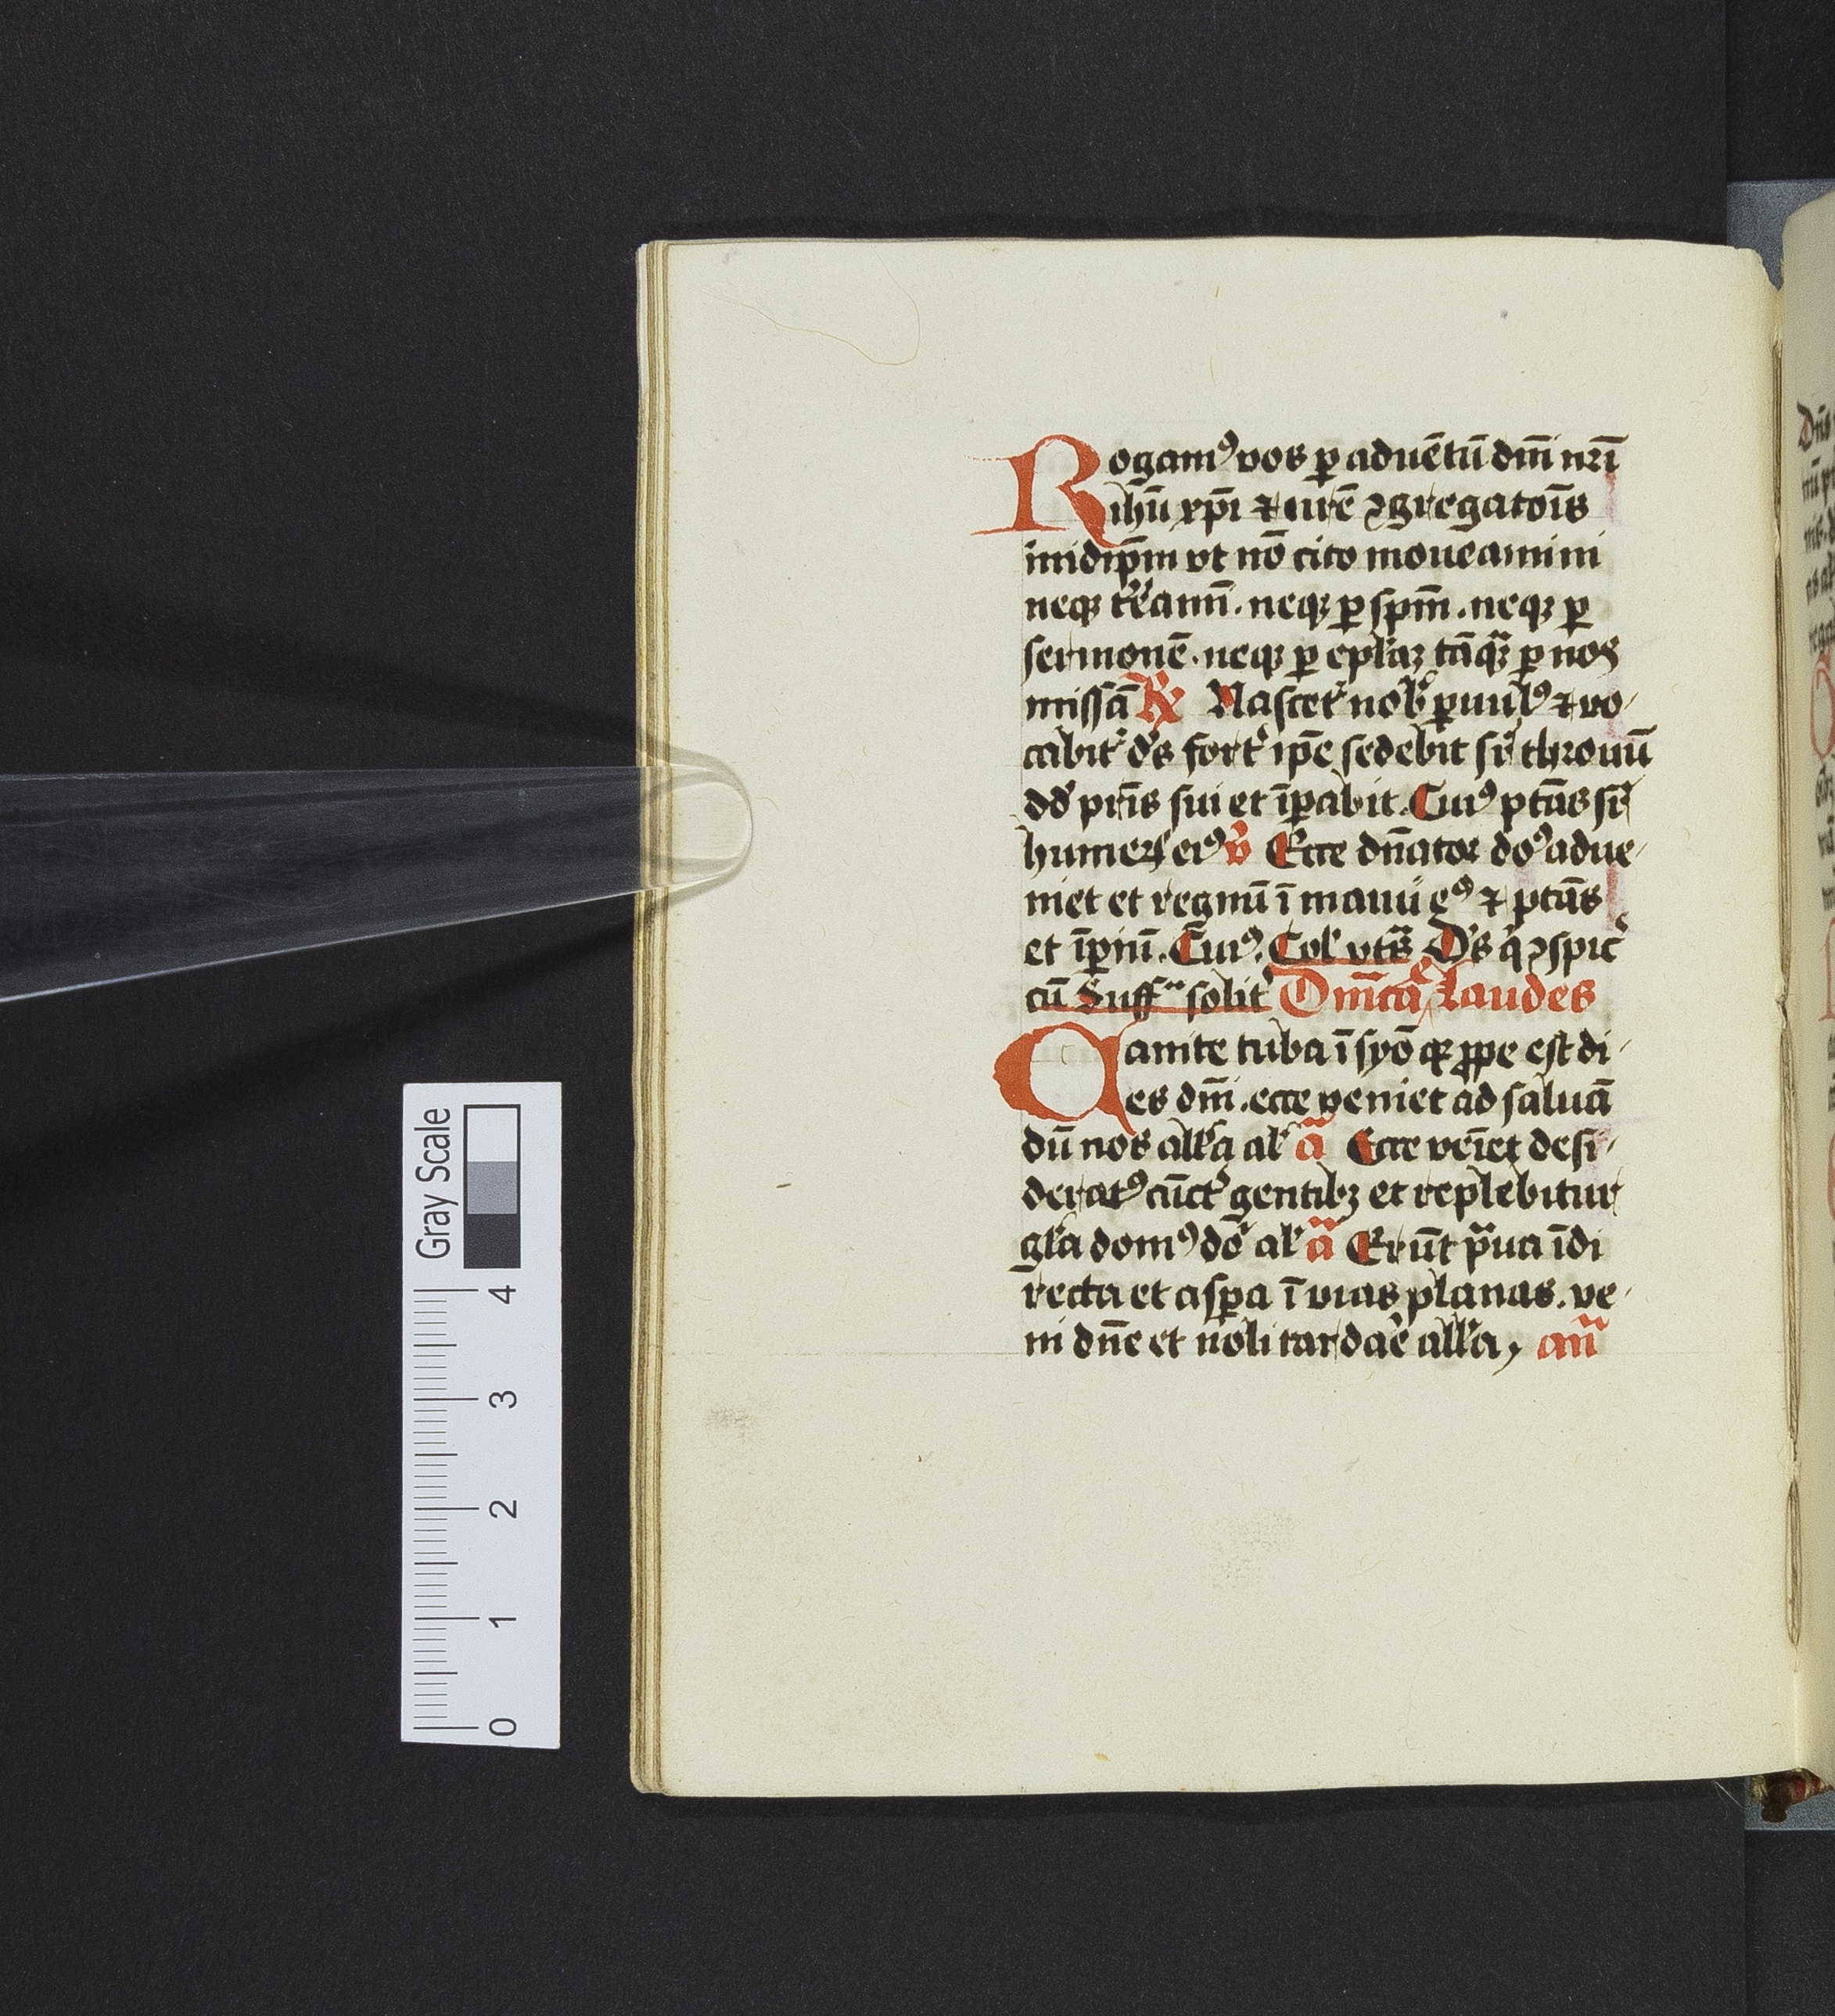 Rogamꝰ vos ꝑ aduētū dm̄i nr̄i
ihū xp̄i ⁊ nr̄ē ꝯgregatoīs
in idip̄m vt nō cito moueamini
neqꝫ t̾reamī. neqꝫ ꝑ sp̄m. neqꝫ ꝑ
sermonē. neqꝫ ꝑ ep̄laꝫ tāqᷓꝫ ꝑ nos
missā ℟ Nascet᷑ nob̾ ꝑuulꝰ ⁊ vo-
cabit᷑ d̾s fort᷑ ip̄e sedebit sr̄ thronū
dd̾ pr̄is sui et īꝑabit. Cuiꝰ ptās sr̄
humeꝝ eiꝰ v̾ Ecce dn̄ator do᷒ adue-
niet et regnū ī manu eꝰ ⁊ ptās
et īꝑiū. Cuiꝰ. Col̾ vts̄ D̾s q̾ ꝯspic̾
cū Suff solit̾ Dm̄ca Laudes
Canite tuba ī syō qꝛ ꝓpe est di-
es dm̄i. ecce veniet ad saluā
dū nos all̾a al̾ a͞ Ecce veīet desi-
deratꝰ cūct̾ gentibꝫ et replebitur
gl̾a domꝰ do̾ al̾ a͞ Erūt pᷓua ī di
recta et asꝑa ī vias planas. ve-
ni dn̄e et noli tardar̾e all̾a, an̄
Gray Scale
0 1 2 3 4